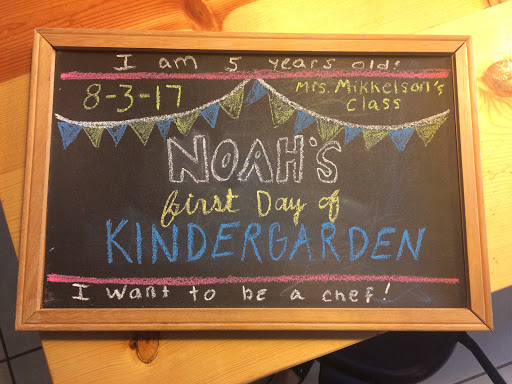 I am 5 years old!
8-3-17
Mrs. Mikkelson's
Class
NOAH'S
first Day of
KINDERGARDEN
I want to be a chef!